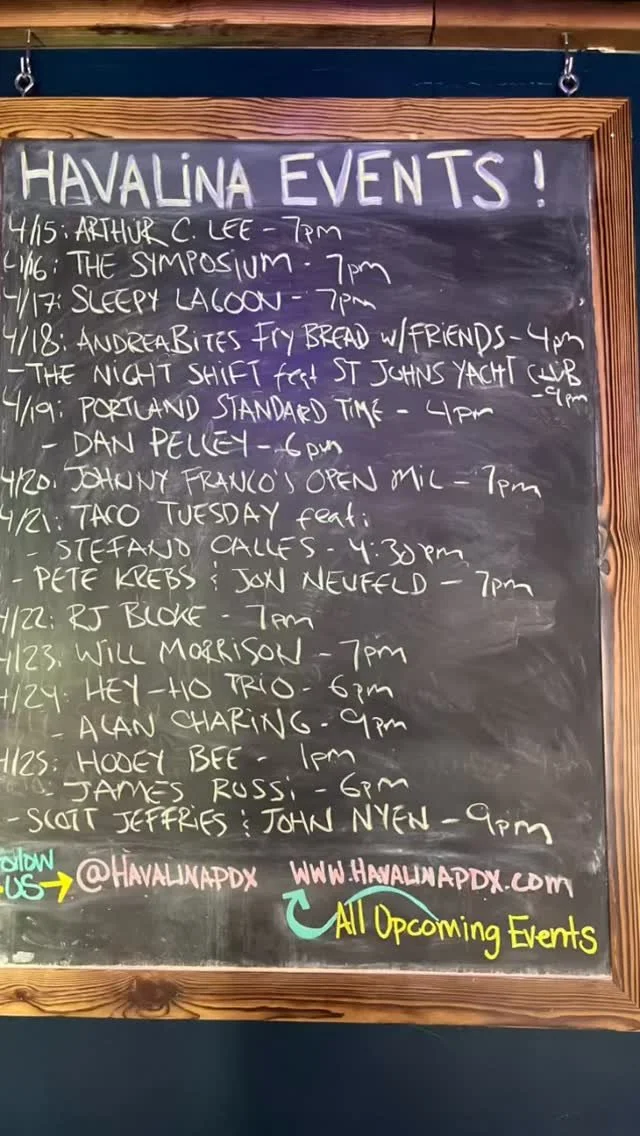 HAVALINA EVENTS!
4/15: ARTHUR C. LEE - 7pm
4/16: THE SYMPOSIUM - 7pm
4/17: SLEEPY LAGOON - 7pm
4/18: ANDREABITES FRY BREAD W/FRIENDS - 4pm
- THE NIGHT SHIFT feat ST JOHNS YACHT CLUB
- 9pm
4/19: PORTLAND STANDARD TIME - 4pm
- DAN PELLEY - 6pm
4/20: JOHNNY FRANCO'S OPEN MIC - 7pm
4/21: TACO TUESDAY feat:
- STEFANO CALLES - 4:30pm
- PETE KREBS & JON NEUFELD - 7pm
4/22: RJ BLOKE - 7pm
4/23: WILL MORRISON - 7pm
4/24: HEY-HO TRIO - 6pm
- ALAN CHARING - 9pm
4/25: HOOEY BEE - 1pm
- JAMES ROSSi - 6pm
- SCOTT JEFFRIES & JOHN NYEN - 9pm
Follow
US → @HAVALINAPDX WWW.HAVALINAPDX.COM
All Upcoming Events